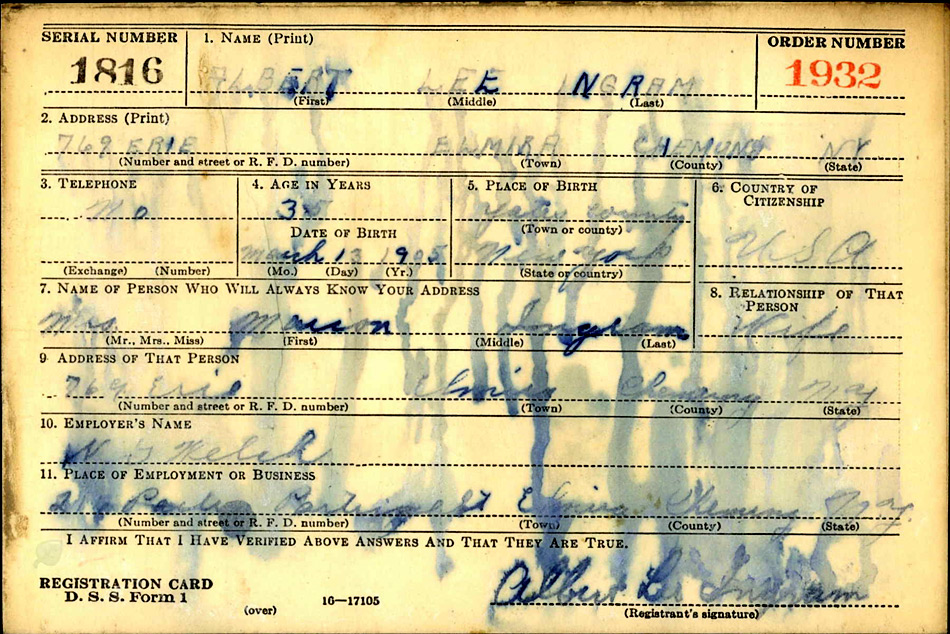 SERIAL NUMBER
1816
1. NAME (Print)
ALBERT LEE INGRAM
(First) (Middle) (Last)
ORDER NUMBER
1932
2. ADDRESS (Print)
769 ERIE ELMIRA CHEMUNG NY
(Number and street or R. F. D. number) (Town) (County) (State)
3. TELEPHONE
No
(Exchange) (Number)
4. AGE IN YEARS
35
DATE OF BIRTH
March 13 1905
(Mo.) (Day) (Yr.)
5. PLACE OF BIRTH
Yates County
(Town or county)
New York
(State or country)
6. COUNTRY OF
CITIZENSHIP
U S A
7. NAME OF PERSON WHO WILL ALWAYS KNOW YOUR ADDRESS
Mrs. Marion Ingram
(Mr., Mrs., Miss) (First) (Middle) (Last)
8. RELATIONSHIP OF THAT
PERSON
Wife
9. ADDRESS OF THAT PERSON
769 Erie Elmira Chemung
(Number and street or R. F. D. number) (Town) (County) (State)
10. EMPLOYER'S NAME
Welch
11. PLACE OF EMPLOYMENT OR BUSINESS
St Elmira Chemung
(Number and street or R. F. D. number) (Town) (County) (State)
I AFFIRM THAT I HAVE VERIFIED ABOVE ANSWERS AND THAT THEY ARE TRUE.
REGISTRATION CARD
D. S. S. Form 1
(over)
16—17105
Albert Lee Ingram
(Registrant's signature)